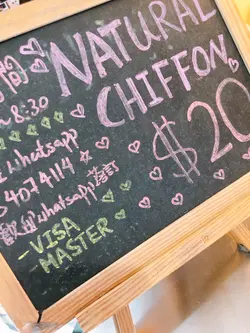 NATURAL
CHIFFON
$20
8:30
whatsapp
4074114
whatsapp 落訂
-VISA
-MASTER